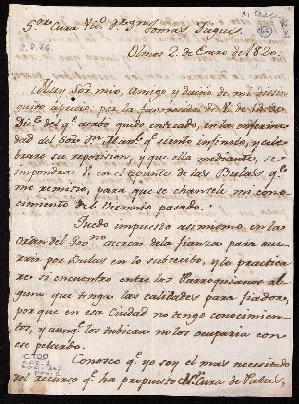 Sor Cura Vic.º D. Tomas Duque
Olmos 2. de Enero de 1820.
Muy Sor mio, Amigo y dueño de mi distinguido
aprecio: por la favorecida de V. de 16. de
Dic.e q.e acabo quedo enterado, en la enferme-
dad del Sor D.n Man.l q.e siento infinito, y cele-
braré su reposicion, y que ella mediante, se
imponga V. en el apunte de las Bulas q.e
me remitio, para que se chancele mi cono-
cimiento del Viennio pasado.
Quedo impuesto asimismo en la
orden del Sor acerca de la fianza para
por Bulas en lo subcesibo, y lo practica-
ré si encuentro entre los Parroquianos al-
guno que tenga las calidades para fiador,
por que en esa Ciudad no tengo conocimien-
tos, y aunq.e los tubiera no los ocuparia con
ese petardo.
Conosco q.e yo soy el mas necesitado
del recurso q.e ha propuesto el Sr. Cura de